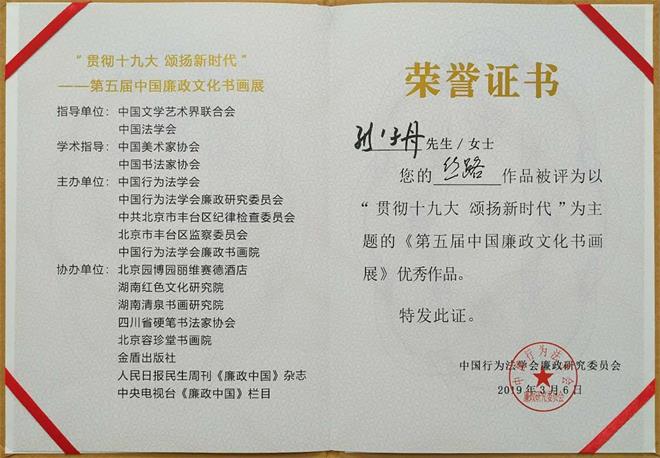 “贯彻十九大 颂扬新时代”
——第五届中国廉政文化书画展
指导单位：中国文学艺术界联合会
中国法学会
学术指导：中国美术家协会
中国书法家协会
主办单位：中国行为法学会
中国行为法学会廉政研究委员会
中共北京市丰台区纪律检查委员会
北京市丰台区监察委员会
中国行为法学会廉政书画院
协办单位：北京园博园丽维赛德酒店
湖南红色文化研究院
湖南清泉书画研究院
四川省硬笔书法家协会
北京容珍堂书画院
金盾出版社
人民日报民生周刊《廉政中国》杂志
中央电视台《廉政中国》栏目
荣誉证书
先生/女士
您的 丝路 作品被评为以
“贯彻十九大 颂扬新时代”为主
题的《第五届中国廉政文化书画
展》优秀作品。
特发此证。
中国行为法学会廉政研究委员会
2019年3月6日
中国行为法学会
廉政研究委员会